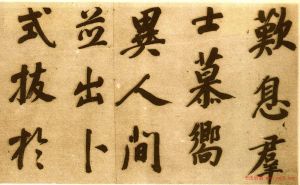 歎息羣
士慕嚮
異人間
並出卜
式拔於